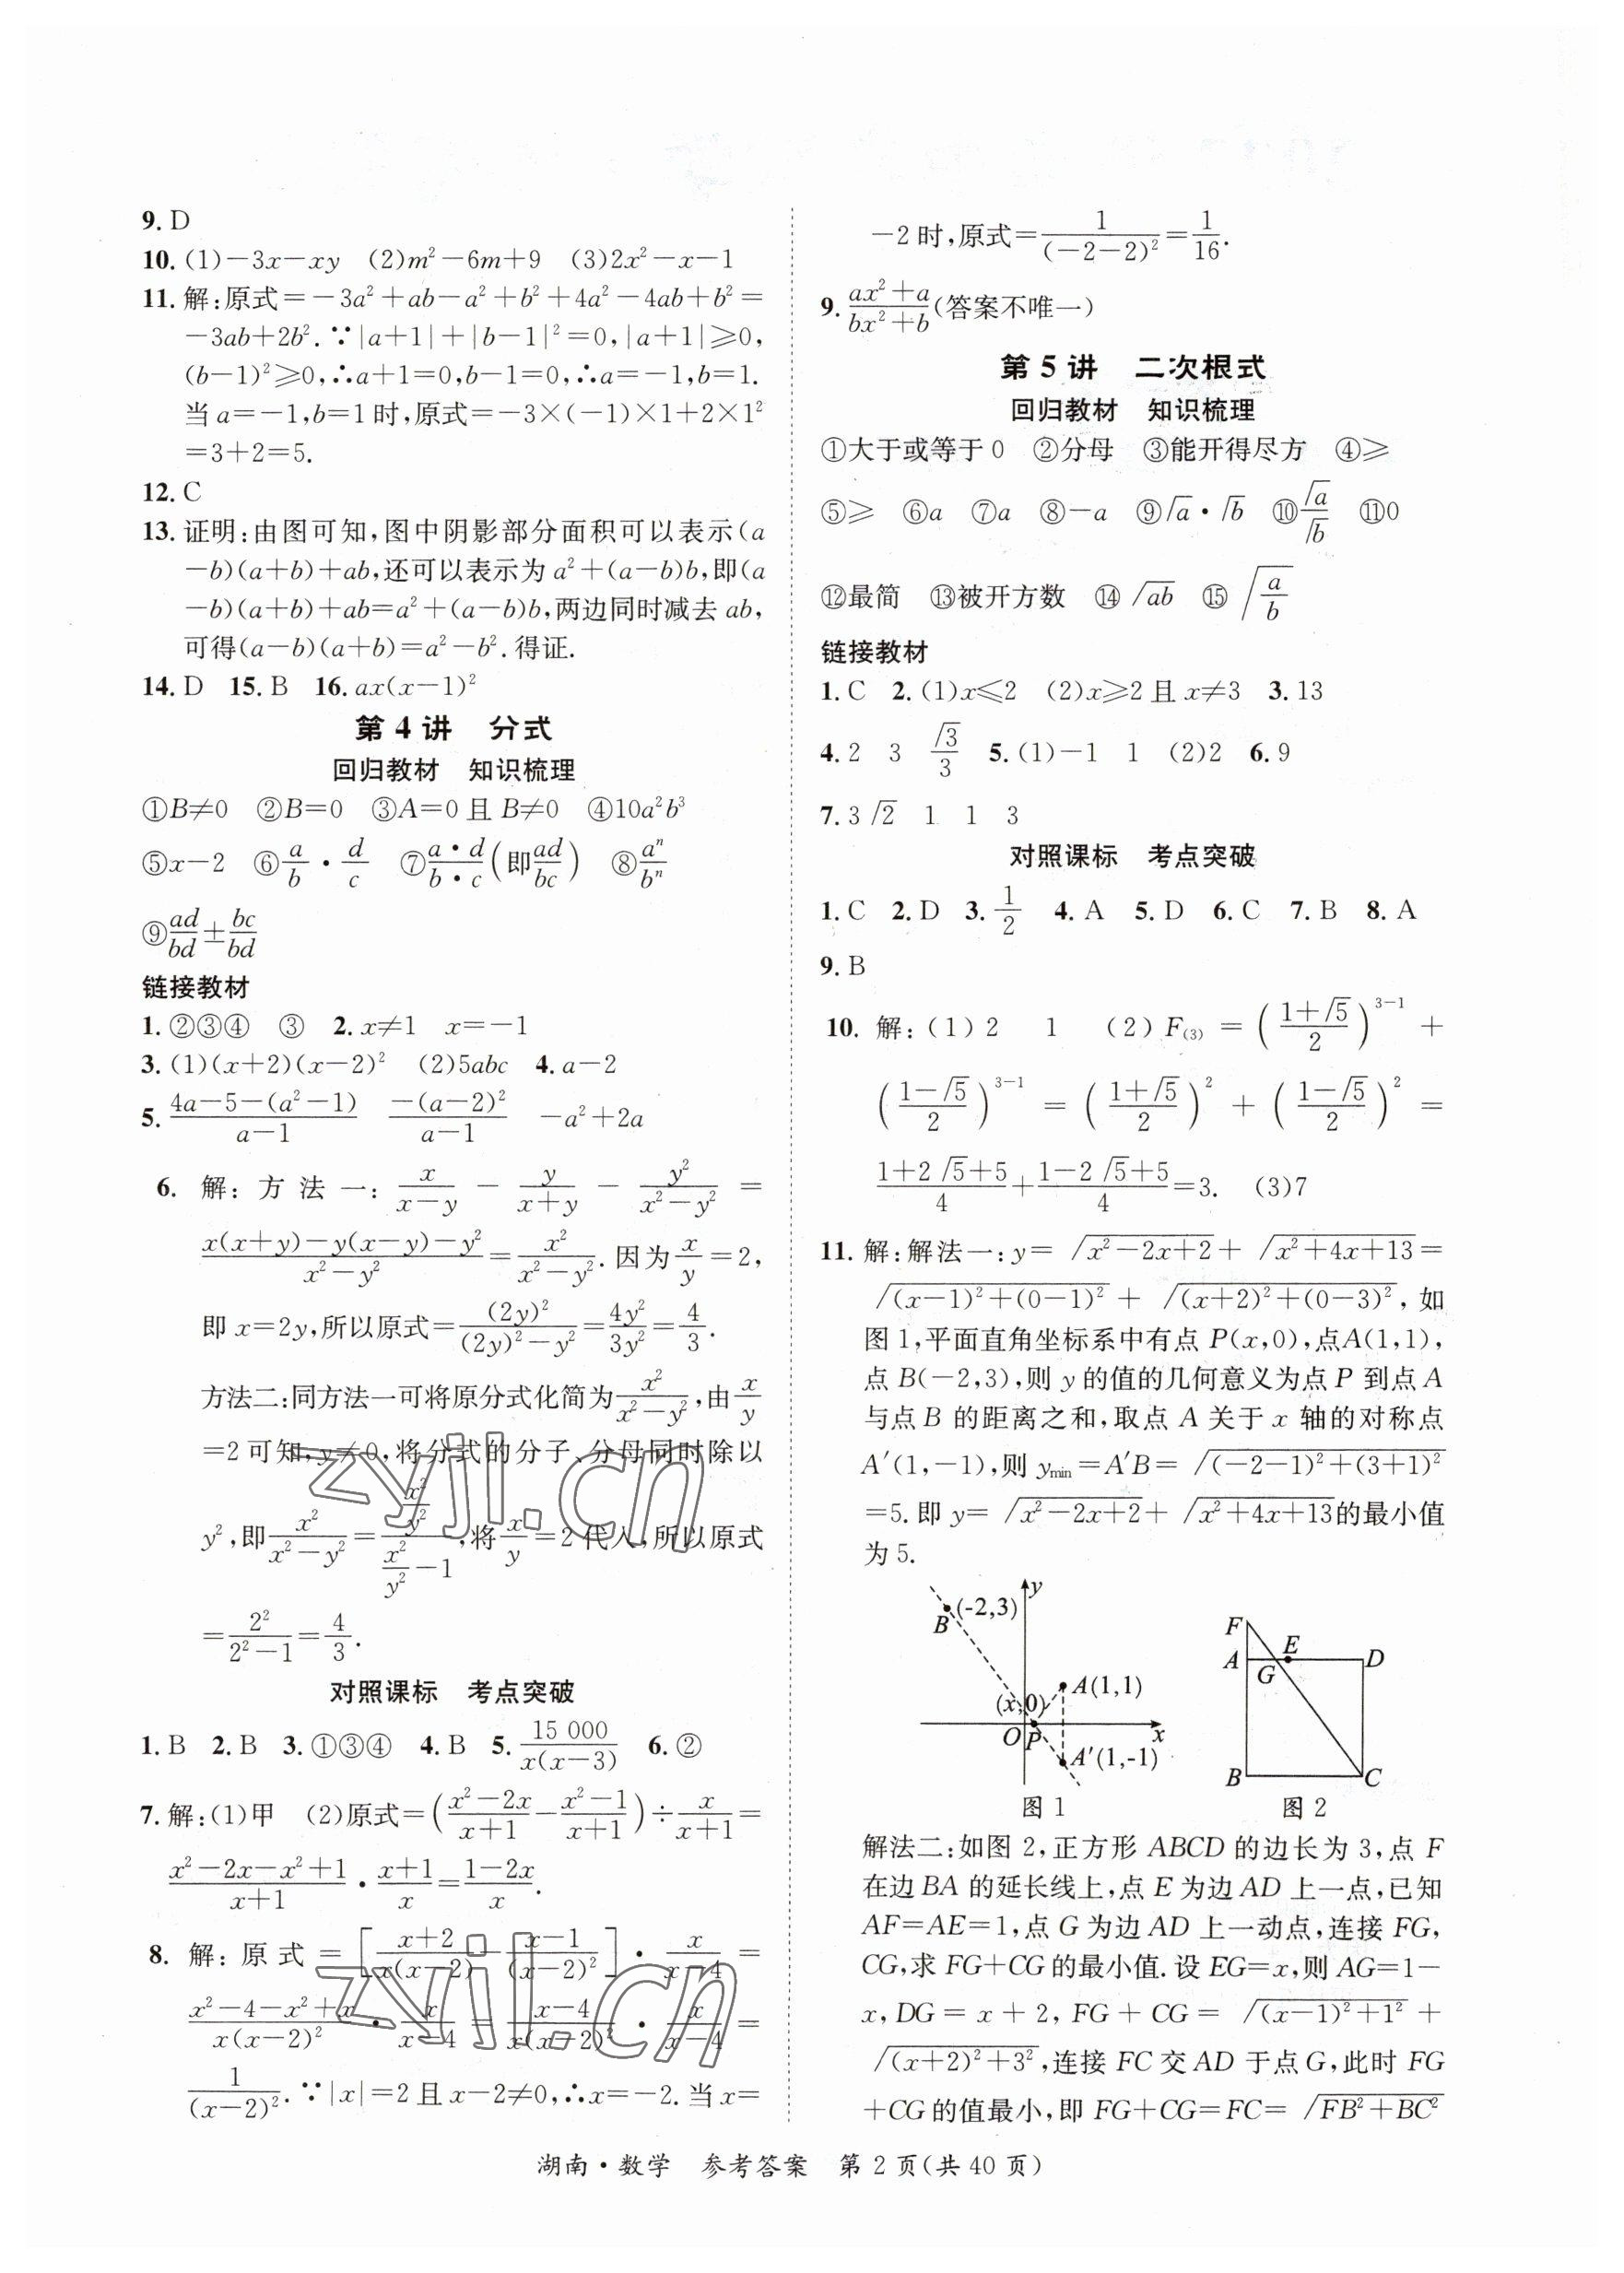 9. D
10. (1)－3x－xy　(2)m²－6m＋9　(3)2x²－x－1
11. 解:原式＝－3a²＋ab－a²＋b²＋4a²－4ab＋b²＝
－3ab＋2b².∵|a＋1|＋|b－1|²＝0,|a＋1|≥0,
(b－1)²≥0,∴a＋1＝0,b－1＝0,∴a＝－1,b＝1.
当a＝－1,b＝1时,原式＝－3×(－1)×1＋2×1²
＝3＋2＝5.
12. C
13. 证明:由图可知,图中阴影部分面积可以表示(a
－b)(a＋b)＋ab,还可以表示为a²＋(a－b)b,即(a
－b)(a＋b)＋ab＝a²＋(a－b)b,两边同时减去ab,
可得(a－b)(a＋b)＝a²－b².得证.
14. D　15. B　16. ax(x－1)²
第4讲　分式
回归教材　知识梳理
①B≠0　②B＝0　③A＝0且B≠0　④10a²b³
⑤x－2　⑥a/b·d/c　⑦(a·d)/(b·c)(即ad/bc)　⑧aⁿ/bⁿ
⑨ad/bd±bc/bd
链接教材
1. ②③④　③　2. x≠1　x＝－1
3. (1)(x＋2)(x－2)²　(2)5abc　4. a－2
5. (4a－5－(a²－1))/(a－1)　(－(a－2)²)/(a－1)　－a²＋2a
6. 解:方法一:x/(x－y)－y/(x＋y)－y²/(x²－y²)＝
(x(x＋y)－y(x－y)－y²)/(x²－y²)＝x²/(x²－y²).因为x/y＝2,
即x＝2y,所以原式＝(2y)²/((2y)²－y²)＝4y²/3y²＝4/3.
方法二:同方法一可将原分式化简为x²/(x²－y²),由x/y
＝2可知,y≠0,将分式的分子、分母同时除以
y²,即x²/(x²－y²)＝(x²/y²)/(x²/y²－1),将x/y＝2代入,所以原式
＝2²/(2²－1)＝4/3.
对照课标　考点突破
1. B　2. B　3. ①③④　4. B　5. 15 000/(x(x－3))　6. ②
7. 解:(1)甲　(2)原式＝((x²－2x)/(x＋1)－(x²－1)/(x＋1))÷x/(x＋1)＝
(x²－2x－x²＋1)/(x＋1)·(x＋1)/x＝(1－2x)/x.
8. 解:原式＝[(x＋2)/(x(x－2))－(x－1)/(x－2)²]·x/(x－4)＝
(x²－4－x²＋x)/(x(x－2)²)·x/(x－4)＝(x－4)/(x(x－2)²)·x/(x－4)＝
1/(x－2)².∵|x|＝2且x－2≠0,∴x＝－2.当x＝
－2时,原式＝1/(－2－2)²＝1/16.
9. (ax²＋a)/(bx²＋b)(答案不唯一)
第5讲　二次根式
回归教材　知识梳理
①大于或等于0　②分母　③能开得尽方　④≥
⑤≥　⑥a　⑦a　⑧－a　⑨√a·√b　⑩√a/√b　⑪0
⑫最简　⑬被开方数　⑭√(ab)　⑮√(a/b)
链接教材
1. C　2. (1)x≤2　(2)x≥2且x≠3　3. 13
4. 2　3　√3/3　5. (1)－1　1　(2)2　6. 9
7. 3√2　1　1　3
对照课标　考点突破
1. C　2. D　3. 1/2　4. A　5. D　6. C　7. B　8. A
9. B
10. 解:(1)2　1　(2)F₍₃₎＝((1＋√5)/2)³⁻¹＋
((1－√5)/2)³⁻¹＝((1＋√5)/2)²＋((1－√5)/2)²＝
(1＋2√5＋5)/4＋(1－2√5＋5)/4＝3.　(3)7
11. 解:解法一:y＝√(x²－2x＋2)＋√(x²＋4x＋13)＝
√((x－1)²＋(0－1)²)＋√((x＋2)²＋(0－3)²),如
图1,平面直角坐标系中有点P(x,0),点A(1,1),
点B(－2,3),则y的值的几何意义为点P到点A
与点B的距离之和,取点A关于x轴的对称点
A′(1,－1),则y_min＝A′B＝√((－2－1)²＋(3＋1)²)
＝5.即y＝√(x²－2x＋2)＋√(x²＋4x＋13)的最小值
为5.
y
(-2,3)
B
A(1,1)
(x,0)
O
P
x
A′(1,-1)
图1
F
E
A
G
D
B
C
图2
解法二:如图2,正方形ABCD的边长为3,点F
在边BA的延长线上,点E为边AD上一点,已知
AF＝AE＝1,点G为边AD上一动点,连接FG,
CG,求FG＋CG的最小值.设EG＝x,则AG＝1－
x,DG＝x＋2,FG＋CG＝√((x－1)²＋1²)＋
√((x＋2)²＋3²),连接FC交AD于点G,此时FG
＋CG的值最小,即FG＋CG＝FC＝√(FB²＋BC²)
湖南·数学　参考答案　第2页(共40页)
zyjl.cn
zyjl.cn